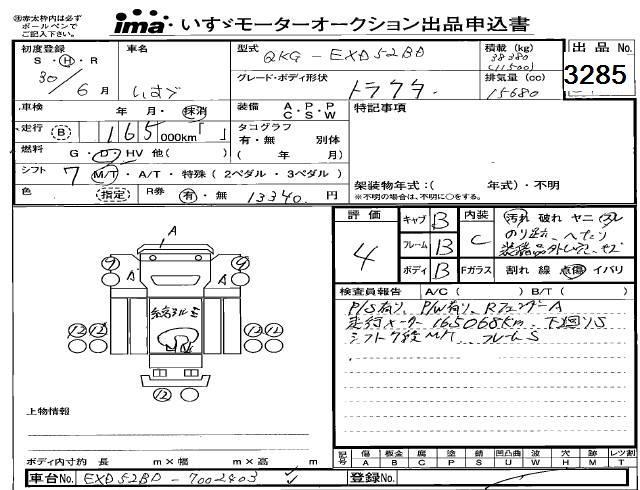 ※赤太枠内は必ず
ボールペンで
ご記入下さい。
ima いすゞモーターオークション出品申込書
初度登録
S・H・R
30/6月
車名
いすゞ
型式
QKG-EXD52BD
積載(kg)
38380
(11500)
出品No.
3285
グレード・ボディ形状
トラクタ
排気量(cc)
15680
車検 年・月・抹消
装備 A・P・P
C・S・W
特記事項
走行 B 165,000km「 」
タコグラフ
有・無 別体
( 年 月)
燃料 G・D・HV 他( )
シフト 7 M/T・A/T・特殊(2ペダル・3ペダル)
架装物年式:( 年式)・不明
※不明の場合は、不明に〇をする。
色 指定 R券 有・無 13340. 円
評価
4
キャブ B
フレーム B
ボディ B
内装 C
Fガラス
汚れ 破れ ヤニ
のり跡、へたり
割れ 線 点傷 イバリ
検査員報告 A/C( ) B/T( )
P/S有り、P/W有り、RフェンダーA
走行メーター165068Km 下廻りS
シフト7速M/T フレームS
A
9 9
A A
12 12 12 12
12
上物情報
ボディ内寸約 長 m×幅 m×高 m
記号 傷 A 板金 B 腐 C 塗 P 錆 S 凹凸曲 U 波 W 穴 H 跡 M レツ割 T
車台No. EXD52BD-7002403
登録No.